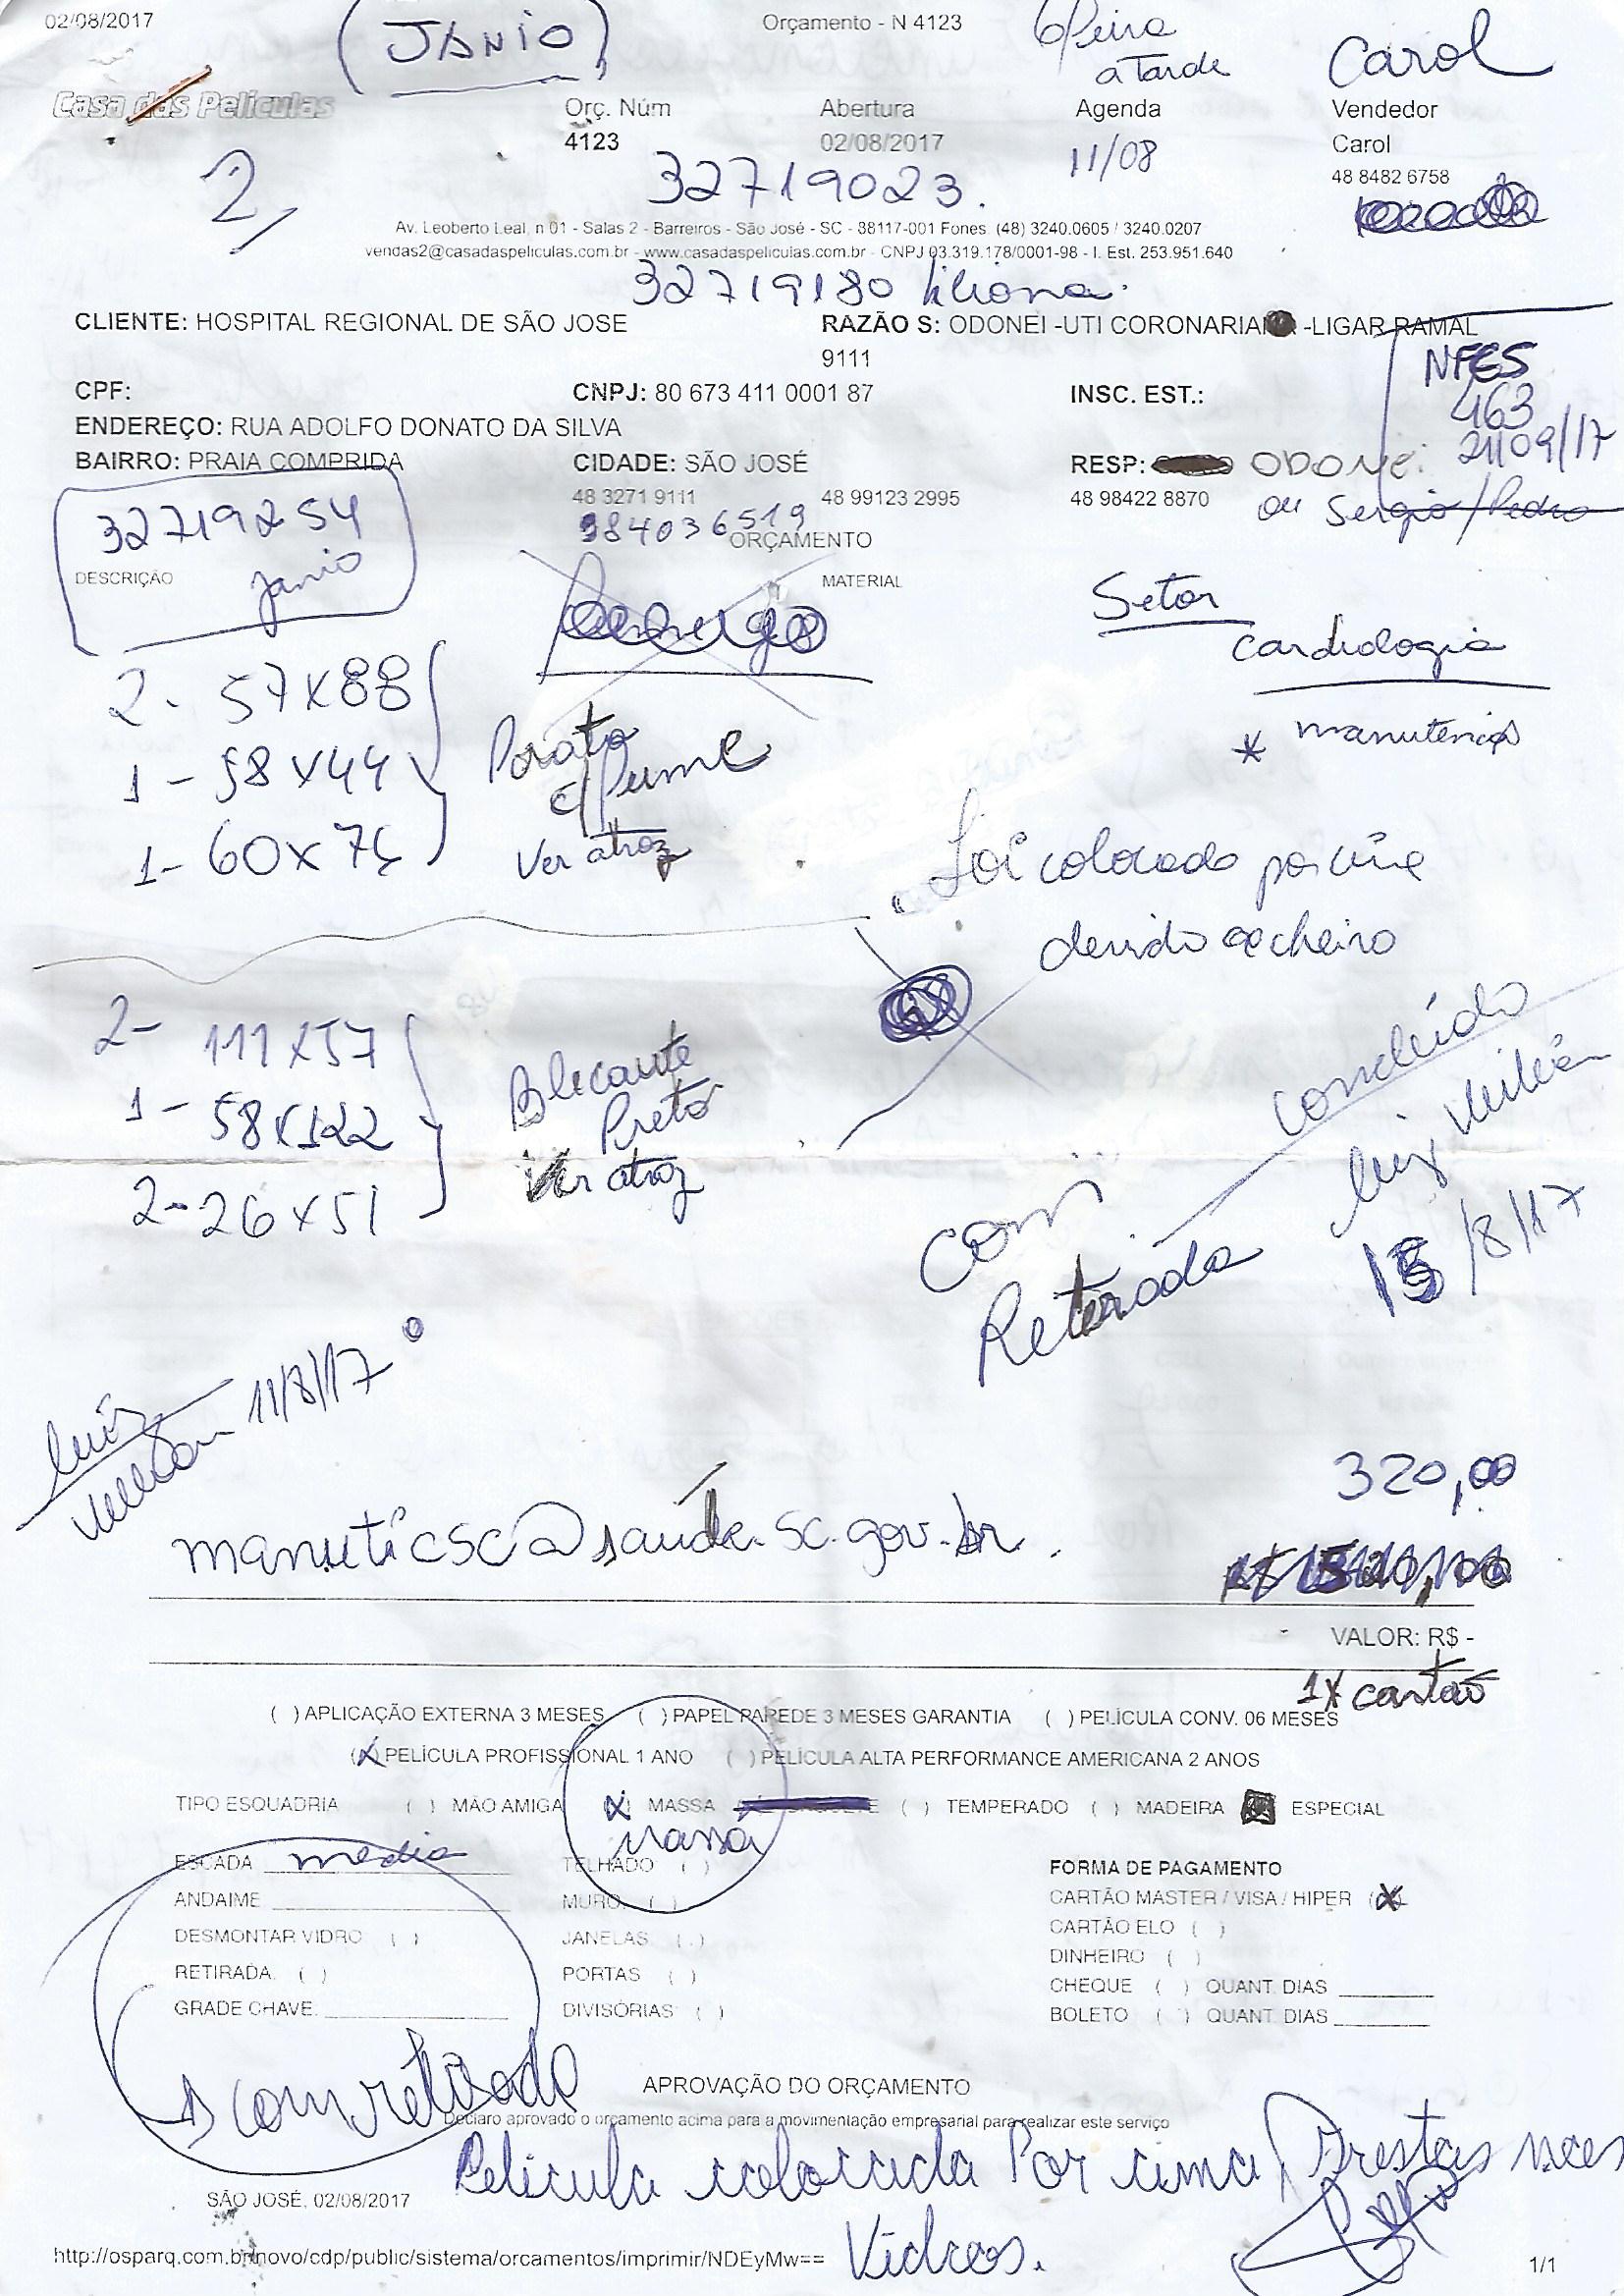 02/08/2017
Orçamento - N 4123
(JANIO)
6/feira
a tarde
Carol
Casa das Películas
Orç. Núm
Abertura
Agenda
Vendedor
4123
02/08/2017
11/08
Carol
48 8482 6758
2,
32719023.
Av. Leoberto Leal, n 01 - Salas 2 - Barreiros - São José - SC - 88117-001 Fones. (48) 3240.0605 / 3240.0207
vendas2@casadaspeliculas.com.br - www.casadaspeliculas.com.br - CNPJ 03.319.178/0001-98 - I. Est. 253.951.640
32719180 Liliana.
CLIENTE: HOSPITAL REGIONAL DE SÃO JOSE
RAZÃO S: ODONEI -UTI CORONARIANA -LIGAR RAMAL
9111
NFES
463
21/09/17
CPF:
CNPJ: 80 673 411 0001 87
INSC. EST.:
ENDEREÇO: RUA ADOLFO DONATO DA SILVA
BAIRRO: PRAIA COMPRIDA
CIDADE: SÃO JOSÉ
RESP: ODONEi
48 3271 9111
48 99123 2995
48 98422 8870
ou Sergio/Pedro
984036519
ORÇAMENTO
32719254
Janio
DESCRIÇÃO
MATERIAL
Setor
cardiologia
* manutenção
2. 57x88
1 - 58x44
1 - 60x
Prata
c/fume
Ver atraz
Foi colocado por cima
devido ao cheiro
2- 111x57
1 - 58x122
2- 26x51
Blecaute
Preto
Ver atraz
concluído
com
Retirada
Luiz
15/8/17
Luiz
11/8/17
320,00
manuticsc@saúde.sc.gov.br.
VALOR: R$ -
1x cartão
( ) APLICAÇÃO EXTERNA 3 MESES ( ) PAPEL PAREDE 3 MESES GARANTIA ( ) PELÍCULA CONV. 06 MESES
(X) PELÍCULA PROFISSIONAL 1 ANO ( ) PELÍCULA ALTA PERFORMANCE AMERICANA 2 ANOS
TIPO ESQUADRIA ( ) MÃO AMIGA (X) MASSA ( ) TEMPERADO ( ) MADEIRA ESPECIAL
massa
ESCADA media
TELHADO ( )
FORMA DE PAGAMENTO
ANDAIME
MURO ( )
CARTÃO MASTER / VISA / HIPER (X)
DESMONTAR VIDRO ( )
JANELAS ( )
CARTÃO ELO ( )
RETIRADA ( )
PORTAS ( )
DINHEIRO ( )
GRADE CHAVE:
DIVISÓRIAS ( )
CHEQUE ( ) QUANT. DIAS
BOLETO ( ) QUANT. DIAS
com retirada
APROVAÇÃO DO ORÇAMENTO
Declaro aprovado o orçamento acima para a movimentação empresarial para realizar este serviço
Pelicula colocada Por cima, Frestas nos
Vidros.
SÃO JOSÉ, 02/08/2017
http://osparq.com.br/novo/cdp/public/sistema/orcamentos/imprimir/NDEyMw==
1/1